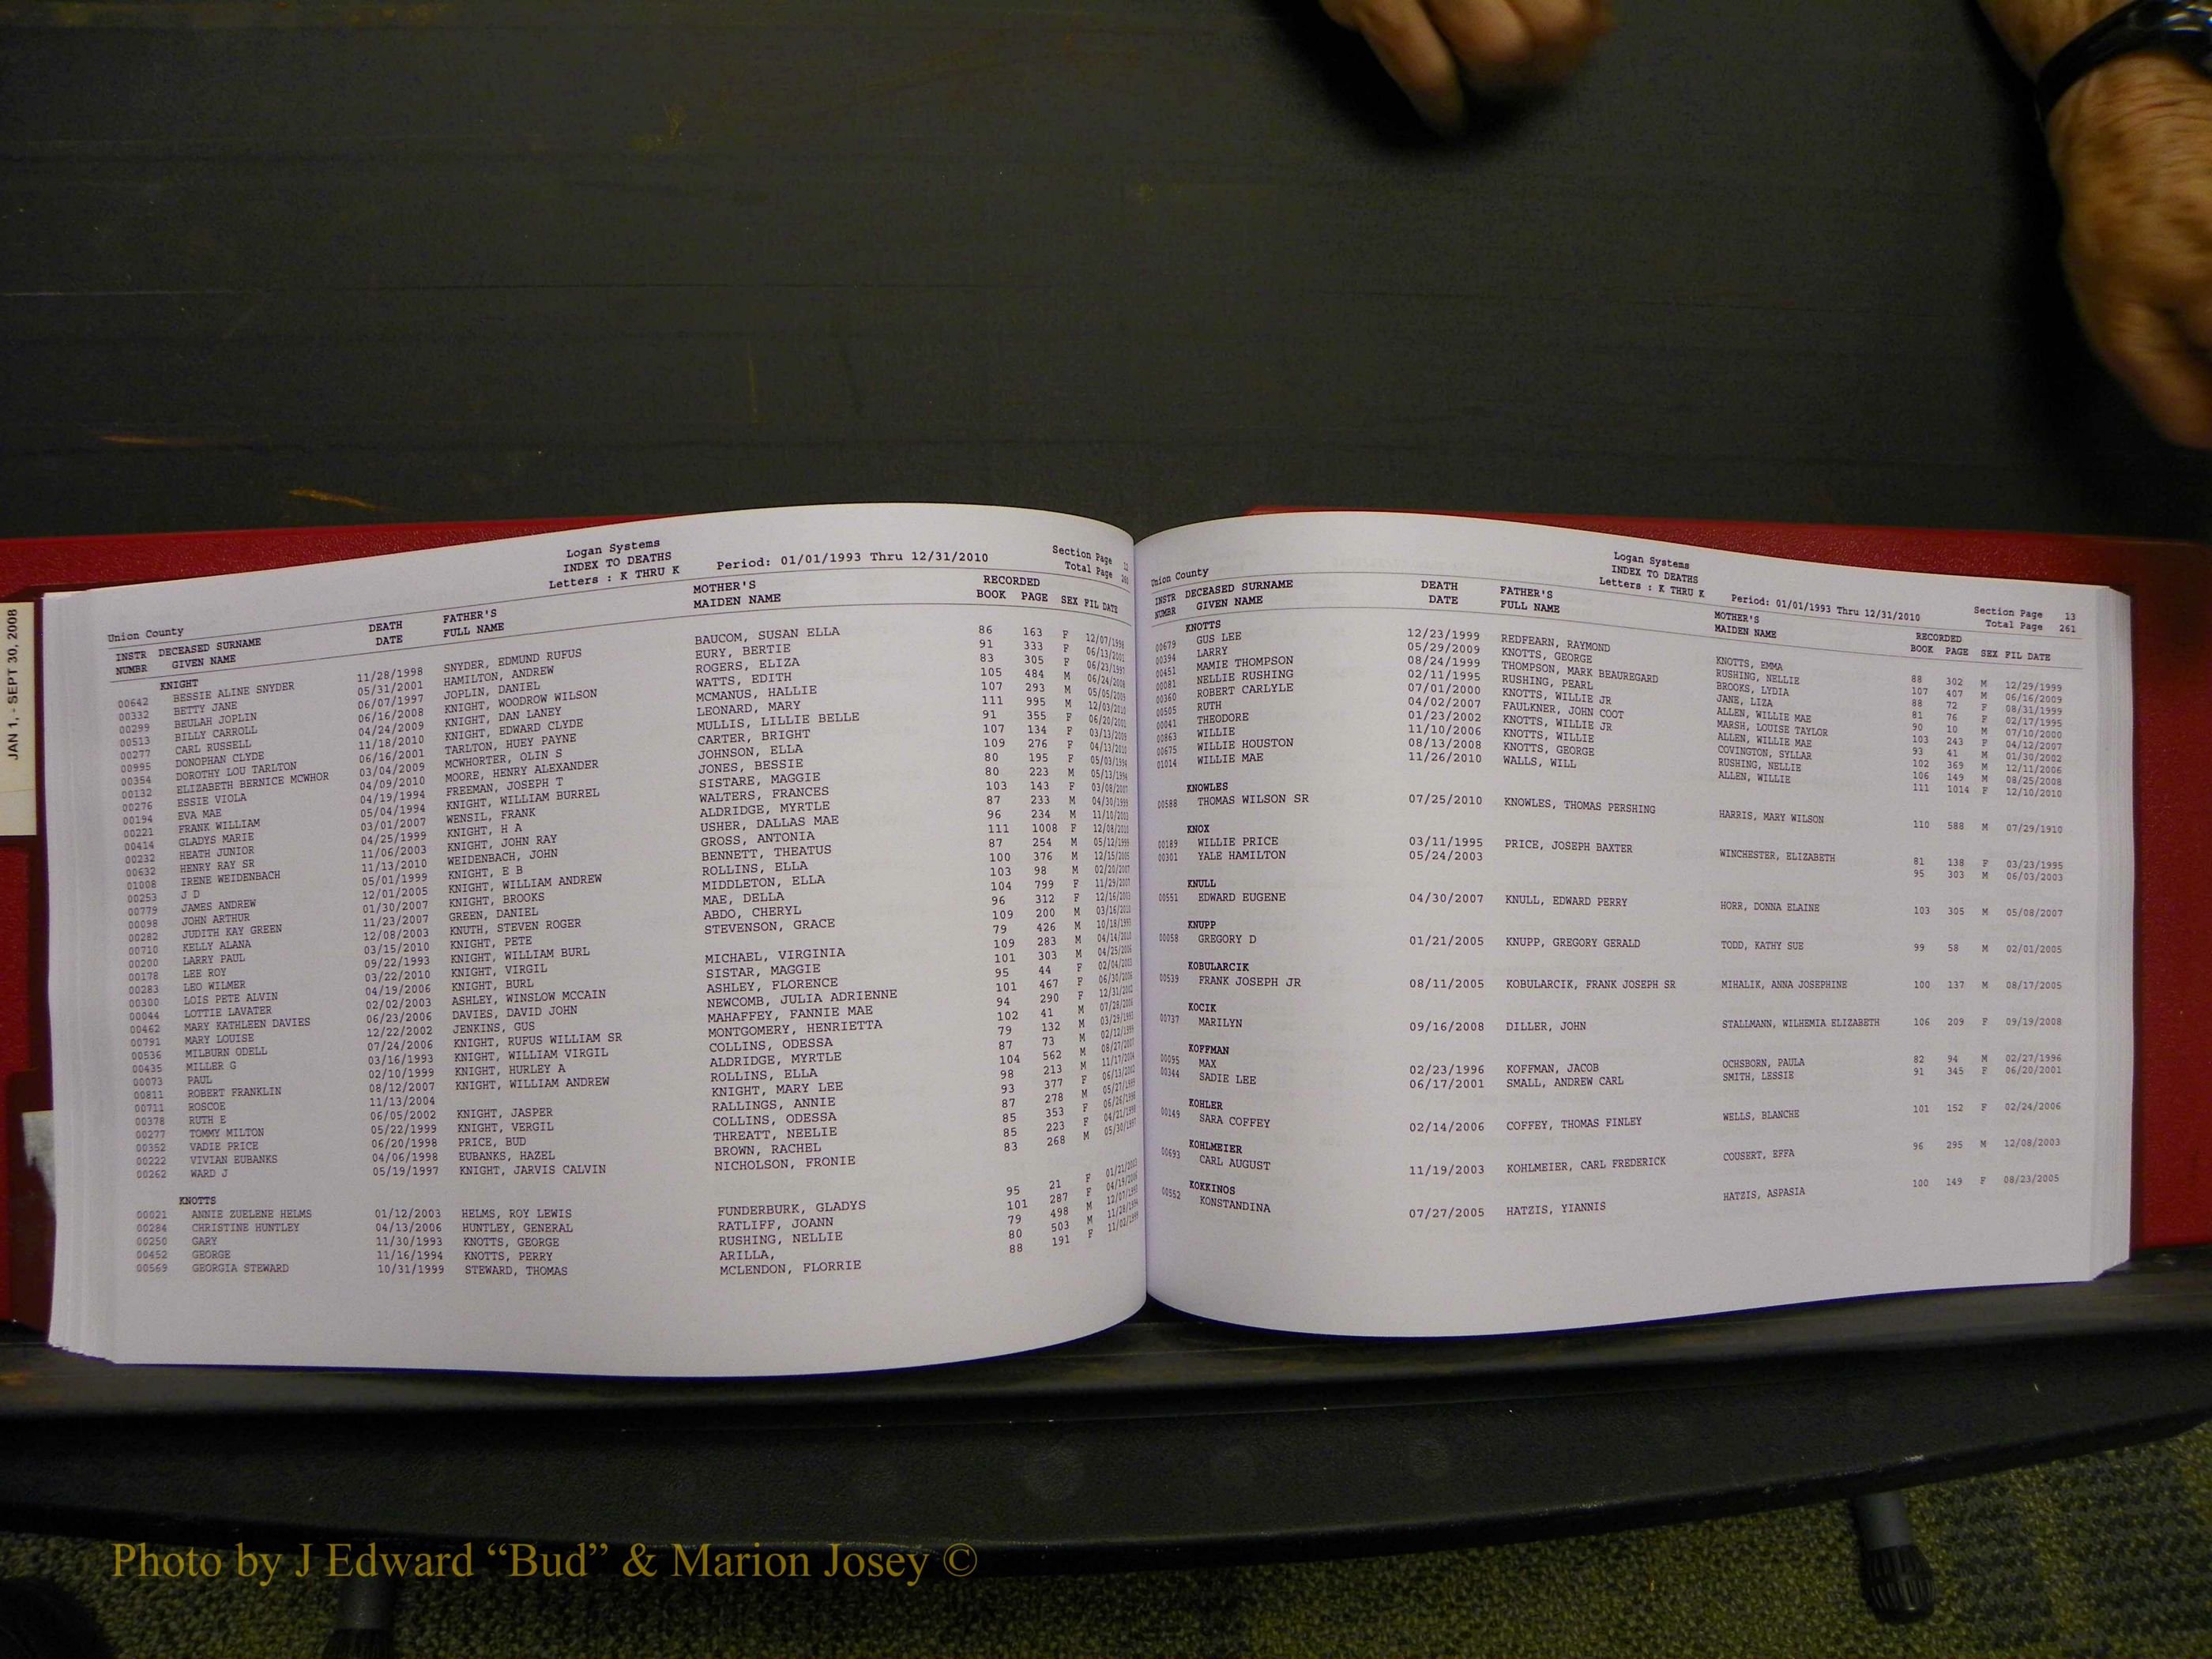 JAN 1, - SEPT 30, 2008
Logan Systems
INDEX TO DEATHS
Letters : K THRU K
Period: 01/01/1993 Thru 12/31/2010
Section Page
Total Page
Union County
INSTR DECEASED SURNAME DEATH FATHER'S MOTHER'S RECORDED
NUMBR GIVEN NAME DATE FULL NAME MAIDEN NAME BOOK PAGE SEX FIL DATE
KNIGHT
00642 BESSIE ALINE SNYDER 11/28/1998 SNYDER, EDMUND RUFUS BAUCOM, SUSAN ELLA 86 163 F 12/07/1998
00332 BETTY JANE 05/31/2001 HAMILTON, ANDREW EURY, BERTIE 91 333 F 06/13/2001
00299 BEULAH JOPLIN 06/07/1997 JOPLIN, DANIEL ROGERS, ELIZA 83 305 F 06/23/1997
00513 BILLY CARROLL 06/16/2008 KNIGHT, WOODROW WILSON WATTS, EDITH 105 484 M 06/24/2008
00277 CARL RUSSELL 04/24/2009 KNIGHT, DAN LANEY MCMANUS, HALLIE 107 293 M 05/05/2009
00995 DONOPHAN CLYDE 11/18/2010 KNIGHT, EDWARD CLYDE LEONARD, MARY 111 995 M 12/03/2010
00354 DOROTHY LOU TARLTON 06/16/2001 TARLTON, HUEY PAYNE MULLIS, LILLIE BELLE 91 355 F 06/20/2001
00132 ELIZABETH BERNICE MCWHOR 03/04/2009 MCWHORTER, OLIN S CARTER, BRIGHT 107 134 F 03/13/2009
00276 ESSIE VIOLA 04/09/2010 MOORE, HENRY ALEXANDER JOHNSON, ELLA 109 276 F 04/13/2010
00194 EVA MAE 04/19/1994 FREEMAN, JOSEPH T JONES, BESSIE 80 195 F 05/03/1994
00221 FRANK WILLIAM 05/04/1994 KNIGHT, WILLIAM BURREL SISTARE, MAGGIE 80 223 M 05/13/1994
00414 GLADYS MARIE 03/01/2007 WENSIL, FRANK WALTERS, FRANCES 103 143 F 03/08/2007
00232 HEATH JUNIOR 04/25/1999 KNIGHT, H A ALDRIDGE, MYRTLE 87 233 M 04/30/1999
00632 HENRY RAY SR 11/06/2003 KNIGHT, JOHN RAY USHER, DALLAS MAE 96 234 M 11/10/2003
01008 IRENE WEIDENBACH 11/13/2010 WEIDENBACH, JOHN GROSS, ANTONIA 111 1008 F 12/08/2010
00253 J D 05/01/1999 KNIGHT, E B BENNETT, THEATUS 87 254 M 05/12/1999
00779 JAMES ANDREW 12/01/2005 KNIGHT, WILLIAM ANDREW ROLLINS, ELLA 100 376 M 12/15/2005
00098 JOHN ARTHUR 01/30/2007 KNIGHT, BROOKS MIDDLETON, ELLA 103 98 M 02/20/2007
00282 JUDITH KAY GREEN 11/23/2007 GREEN, DANIEL MAE, DELLA 104 799 F 11/29/2007
00710 KELLY ALANA 12/08/2003 KNUTH, STEVEN ROGER ABDO, CHERYL 96 312 F 12/16/2003
00200 LARRY PAUL 03/15/2010 KNIGHT, PETE STEVENSON, GRACE 109 200 M 03/16/2010
00178 LEE ROY 09/22/1993 KNIGHT, WILLIAM BURL 79 426 M 10/18/1993
00283 LEO WILMER 03/22/2010 KNIGHT, VIRGIL MICHAEL, VIRGINIA 109 283 M 04/14/2010
00300 LOIS PETE ALVIN 04/19/2006 KNIGHT, BURL SISTAR, MAGGIE 101 303 M 04/25/2006
00044 LOTTIE LAVATER 02/02/2003 ASHLEY, WINSLOW MCCAIN ASHLEY, FLORENCE 95 44 F 02/04/2003
00462 MARY KATHLEEN DAVIES 06/23/2006 DAVIES, DAVID JOHN NEWCOMB, JULIA ADRIENNE 101 467 F 06/30/2006
00791 MARY LOUISE 12/22/2002 JENKINS, GUS MAHAFFEY, FANNIE MAE 94 290 F 12/31/2002
00536 MILBURN ODELL 07/24/2006 KNIGHT, RUFUS WILLIAM SR MONTGOMERY, HENRIETTA 102 41 M 07/28/2006
00435 MILLER G 03/16/1993 KNIGHT, WILLIAM VIRGIL COLLINS, ODESSA 79 132 M 03/29/1993
00073 PAUL 02/10/1999 KNIGHT, HURLEY A ALDRIDGE, MYRTLE 87 73 M 02/12/1999
00811 ROBERT FRANKLIN 08/12/2007 KNIGHT, WILLIAM ANDREW ROLLINS, ELLA 104 562 M 08/27/2007
00711 ROSCOE 11/13/2004 KNIGHT, MARY LEE 98 213 M 11/17/2004
00378 RUTH E 06/05/2002 KNIGHT, JASPER RALLINGS, ANNIE 93 377 F 06/13/2002
00277 TOMMY MILTON 05/22/1999 KNIGHT, VERGIL COLLINS, ODESSA 87 278 M 05/27/1999
00352 VADIE PRICE 06/20/1998 PRICE, BUD THREATT, NEELIE 85 353 F 06/26/1998
00222 VIVIAN EUBANKS 04/06/1998 EUBANKS, HAZEL BROWN, RACHEL 85 223 F 04/21/1998
00262 WARD J 05/19/1997 KNIGHT, JARVIS CALVIN NICHOLSON, FRONIE 83 268 M 05/30/1997
KNOTTS
00021 ANNIE ZUELENE HELMS 01/12/2003 HELMS, ROY LEWIS FUNDERBURK, GLADYS 95 21 F 01/21/2003
00284 CHRISTINE HUNTLEY 04/13/2006 HUNTLEY, GENERAL RATLIFF, JOANN 101 287 F 04/19/2006
00250 GARY 11/30/1993 KNOTTS, GEORGE RUSHING, NELLIE 79 498 M 12/07/1993
00452 GEORGE 11/16/1994 KNOTTS, PERRY ARILLA, 80 503 M 11/28/1994
00569 GEORGIA STEWARD 10/31/1999 STEWARD, THOMAS MCLENDON, FLORRIE 88 191 F 11/02/1999
Logan Systems
INDEX TO DEATHS
Letters : K THRU K
Period: 01/01/1993 Thru 12/31/2010
Section Page 13
Total Page 261
Union County
INSTR DECEASED SURNAME DEATH FATHER'S MOTHER'S RECORDED
NUMBR GIVEN NAME DATE FULL NAME MAIDEN NAME BOOK PAGE SEX FIL DATE
KNOTTS
00679 GUS LEE 12/23/1999 REDFEARN, RAYMOND KNOTTS, EMMA 88 302 M 12/29/1999
00394 LARRY 05/29/2009 KNOTTS, GEORGE RUSHING, NELLIE 107 407 M 06/16/2009
00451 MAMIE THOMPSON 08/24/1999 THOMPSON, MARK BEAUREGARD BROOKS, LYDIA 88 72 F 08/31/1999
00081 NELLIE RUSHING 02/11/1995 RUSHING, PEARL JANE, LIZA 81 76 F 02/17/1995
00360 ROBERT CARLYLE 07/01/2000 KNOTTS, WILLIE JR ALLEN, WILLIE MAE 90 10 M 07/10/2000
00505 RUTH 04/02/2007 FAULKNER, JOHN COOT MARSH, LOUISE TAYLOR 103 243 F 04/12/2007
00041 THEODORE 01/23/2002 KNOTTS, WILLIE JR ALLEN, WILLIE MAE 93 41 M 01/30/2002
00863 WILLIE 11/10/2006 KNOTTS, WILLIE COVINGTON, SYLLAR 102 369 M 12/11/2006
00675 WILLIE HOUSTON 08/13/2008 KNOTTS, GEORGE RUSHING, NELLIE 106 149 M 08/25/2008
01014 WILLIE MAE 11/26/2010 WALLS, WILL ALLEN, WILLIE 111 1014 F 12/10/2010
KNOWLES
00588 THOMAS WILSON SR 07/25/2010 KNOWLES, THOMAS PERSHING HARRIS, MARY WILSON 110 588 M 07/29/1910
KNOX
00189 WILLIE PRICE 03/11/1995 PRICE, JOSEPH BAXTER WINCHESTER, ELIZABETH 81 138 F 03/23/1995
00301 YALE HAMILTON 05/24/2003 95 303 M 06/03/2003
KNULL
00551 EDWARD EUGENE 04/30/2007 KNULL, EDWARD PERRY HORR, DONNA ELAINE 103 305 M 05/08/2007
KNUPP
00058 GREGORY D 01/21/2005 KNUPP, GREGORY GERALD TODD, KATHY SUE 99 58 M 02/01/2005
KOBULARCIK
00539 FRANK JOSEPH JR 08/11/2005 KOBULARCIK, FRANK JOSEPH SR MIHALIK, ANNA JOSEPHINE 100 137 M 08/17/2005
KOCIK
00737 MARILYN 09/16/2008 DILLER, JOHN STALLMANN, WILHEMIA ELIZABETH 106 209 F 09/19/2008
KOFFMAN
00095 MAX 02/23/1996 KOFFMAN, JACOB OCHSBORN, PAULA 82 94 M 02/27/1996
00344 SADIE LEE 06/17/2001 SMALL, ANDREW CARL SMITH, LESSIE 91 345 F 06/20/2001
KOHLER
00149 SARA COFFEY 02/14/2006 COFFEY, THOMAS FINLEY WELLS, BLANCHE 101 152 F 02/24/2006
KOHLMEIER
00693 CARL AUGUST 11/19/2003 KOHLMEIER, CARL FREDERICK COUSERT, EFFA 96 295 M 12/08/2003
KOKKINOS
00552 KONSTANDINA 07/27/2005 HATZIS, YIANNIS HATZIS, ASPASIA 100 149 F 08/23/2005
Photo by J Edward “Bud” & Marion Josey ©